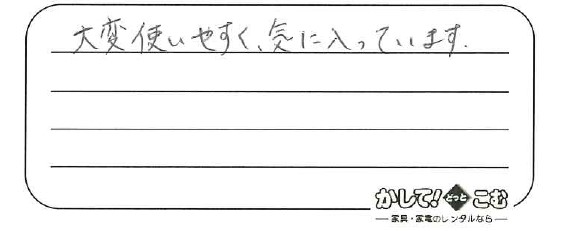 大変使いやすく、気に入っています.
かして!どっとこむ
家具・家電のレンタルなら